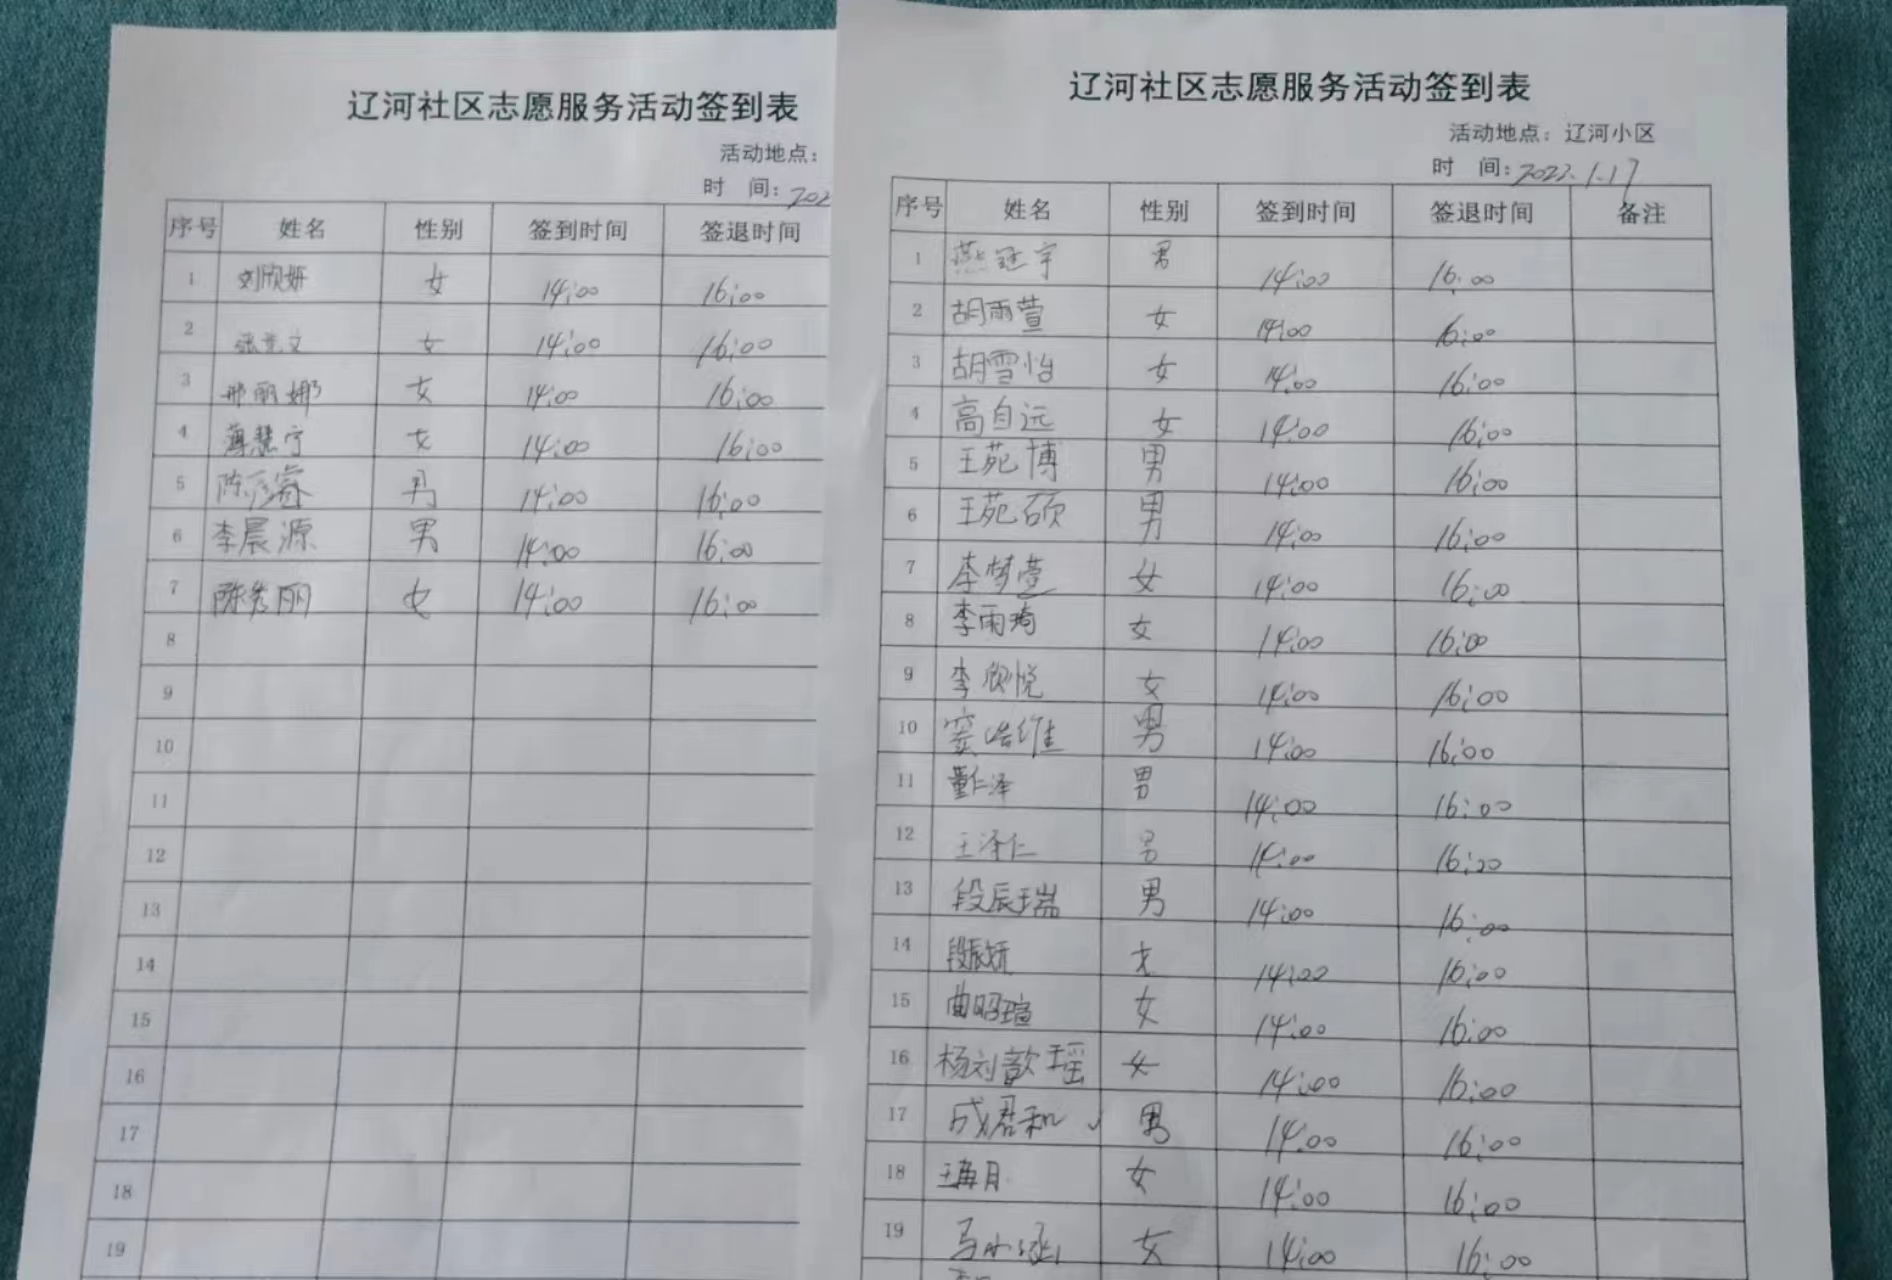 辽河社区志愿服务活动签到表
活动地点：
时 间：202
序号 姓名 性别 签到时间 签退时间
1 刘欣妍 女 14:00 16:00
2 女 14:00 16:00
3 邢丽娜 女 14:00 16:00
4 薄慧宁 女 14:00 16:00
5 陈彦睿 男 14:00 16:00
6 李晨源 男 14:00 16:00
7 陈秀丽 女 14:00 16:00
8
9
10
11
12
13
14
15
16
17
18
19
辽河社区志愿服务活动签到表
活动地点：辽河小区
时 间：2022.1.17
序号 姓名 性别 签到时间 签退时间 备注
1 燕冠宇 男 14:00 16:00
2 胡雨萱 女 14:00 16:00
3 胡雪怡 女 14:00 16:00
4 高自远 女 14:00 16:00
5 王苑博 男 14:00 16:00
6 王苑硕 男 14:00 16:00
7 李梦萱 女 14:00 16:00
8 李雨琦 女 14:00 16:00
9 李欣悦 女 14:00 16:00
10 窦皓维 男 14:00 16:00
11 董仁泽 男 14:00 16:00
12 王泽仁 男 14:00 16:00
13 段辰瑞 男 14:00 16:00
14 段辰妍 女 14:00 16:00
15 曲昭瑄 女 14:00 16:00
16 杨刘歆瑶 女 14:00 16:00
17 成君和 男 14:00 16:00
18 女 14:00 16:00
19 马小涵 女 14:00 16:00